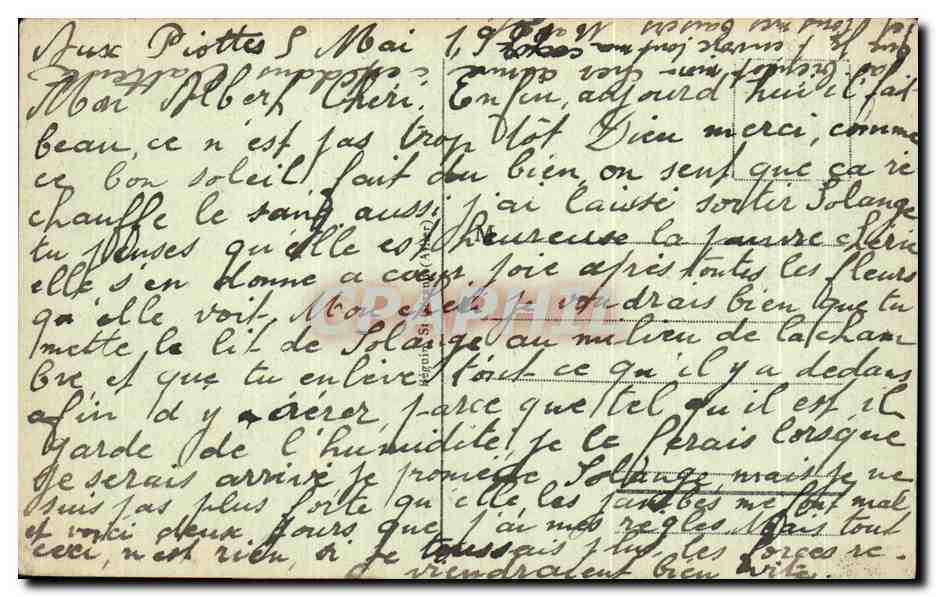 Aux Piottes 5 Mai 19
Mon Albert Chéri. Enfin, aujourd'hui il fait
beau, ce n'est pas trop tôt Dieu merci, comme
ce bon soleil fait du bien, on sent que ça ré
chauffe le sang, aussi j'ai laissé sortir Solange
tu penses qu'elle est heureuse la pauvre chérie
elle s'en donne a cœur joie après toutes les fleurs
qu'elle voit. Mon chéri je voudrais bien que tu
mette, le lit de Solange au milieu de la cham
bre, et que tu enlève tout ce qu'il y a dedans
afin d'y aérer, parce que tel qu'il est, il
garde de l'humidité, je le ferais lorsque
je serais arrivé je promène Solange, mais je ne
suis pas plus forte qu'elle les jambes me font mal
et voici deux jours que j'ai mes règles. Mais tout
ceci, n'est rien, si je toussais plus, les forces re-
viendraient bien vite.
M
CPARPHIL